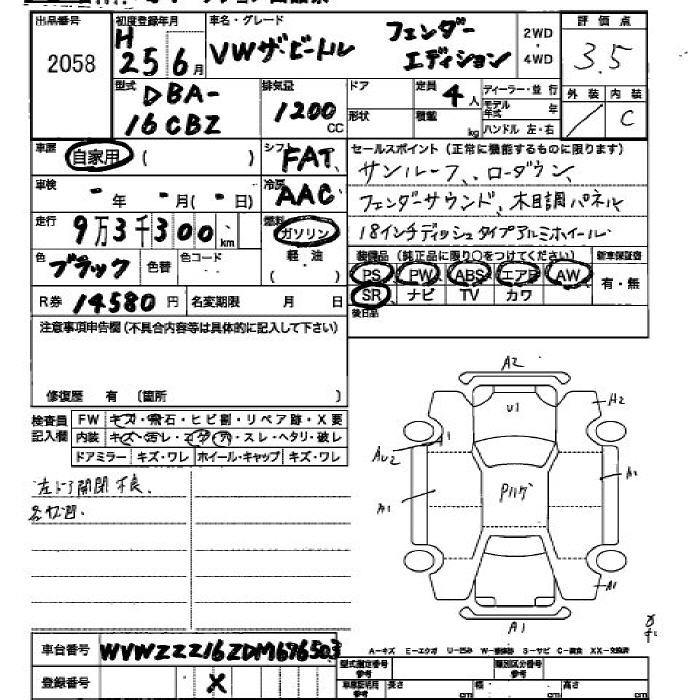 出品番号 初度登録年月 車名・グレード 評価点
2058 H25 6月 VWザ・ビートル フェンダーエディション 2WD・4WD 3.5
型式 DBA-16CBZ 排気量 1200 CC ドア 形状 定員 4人 積載 kg ディーラー・並行 モデル年式 年 ハンドル 左・右 外装 / 内装 C
車歴 自家用 ( ) シフト FAT セールスポイント (正常に機能するものに限ります)
サンルーフ、ローダウン、
車検 - 年 - 月(- 日) 冷房 AAC フェンダーサウンド、木目調パネル
走行 9万3千300km 燃料 ガソリン 軽油 ( ) 18インチディッシュタイプアルミホイール
色 ブラック 色替 色コード 装備品 (純正品に限り○をつけてください) 新車保証書
PS PW ABS エアB AW 有・無
SR ナビ TV カワ
R券 14580円 名変期限 月 日 後日品
注意事項申告欄 (不具合内容等は具体的に記入して下さい)
修復歴 有 〔箇所 〕
検査員記入欄 FW キズ・飛石・ヒビ割・リペア跡・X要
内装 キズ・汚レ・コゲ・穴・スレ・ヘタリ・破レ
ドアミラー キズ・ワレ ホイール・キャップ キズ・ワレ
左ドア開閉不良、
A2
U1
A2
A1
AU2
Pハゲ
A1
A2
A1
A1
車台番号 WVWZZZ16ZDM676503
A-キズ E-エクボ U-凹み W-補修跡 S-サビ C-腐食 XX-交換済
登録番号 X 型式指定番号参考 類別区分番号参考
車庫証明用参考 長さ cm 幅 cm 高さ cm